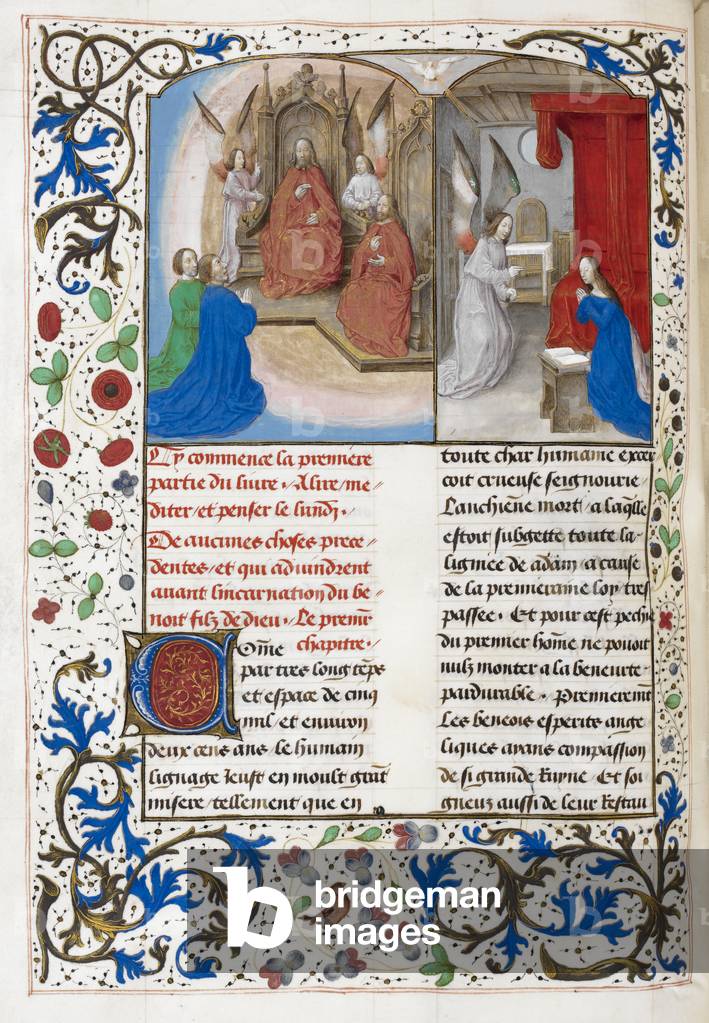 Cy commence la premiere
partie du liure . A lire / me/
diter / et penser le lundj .
De aucunes choses prece/
dentes / et qui aduindrent
auant lincarnation du be/
noit filz de dieu . Le premir
chapitre .
Come
par tres long temps
et espace de cinq
mil / et enuiron
deux cens ans / le humain
lignage Jeust en moult grant
misere / tellement que en
toute char humaine exer
coit crueuse seignourie
Lanchienne mort / a laqlle
estoit subgette toute la
lignee de adam / a cause
de la premeraine loy tres
passee . Et pour cest peche
du premier home ne pouoit
nulz monter a la beneurte
pardurable . Premieremt
Les beneois esperits ange
liques aians compassion
de si grande Ruyne / Et soi
gneuz aussi de leur Restau
b bridgeman
images